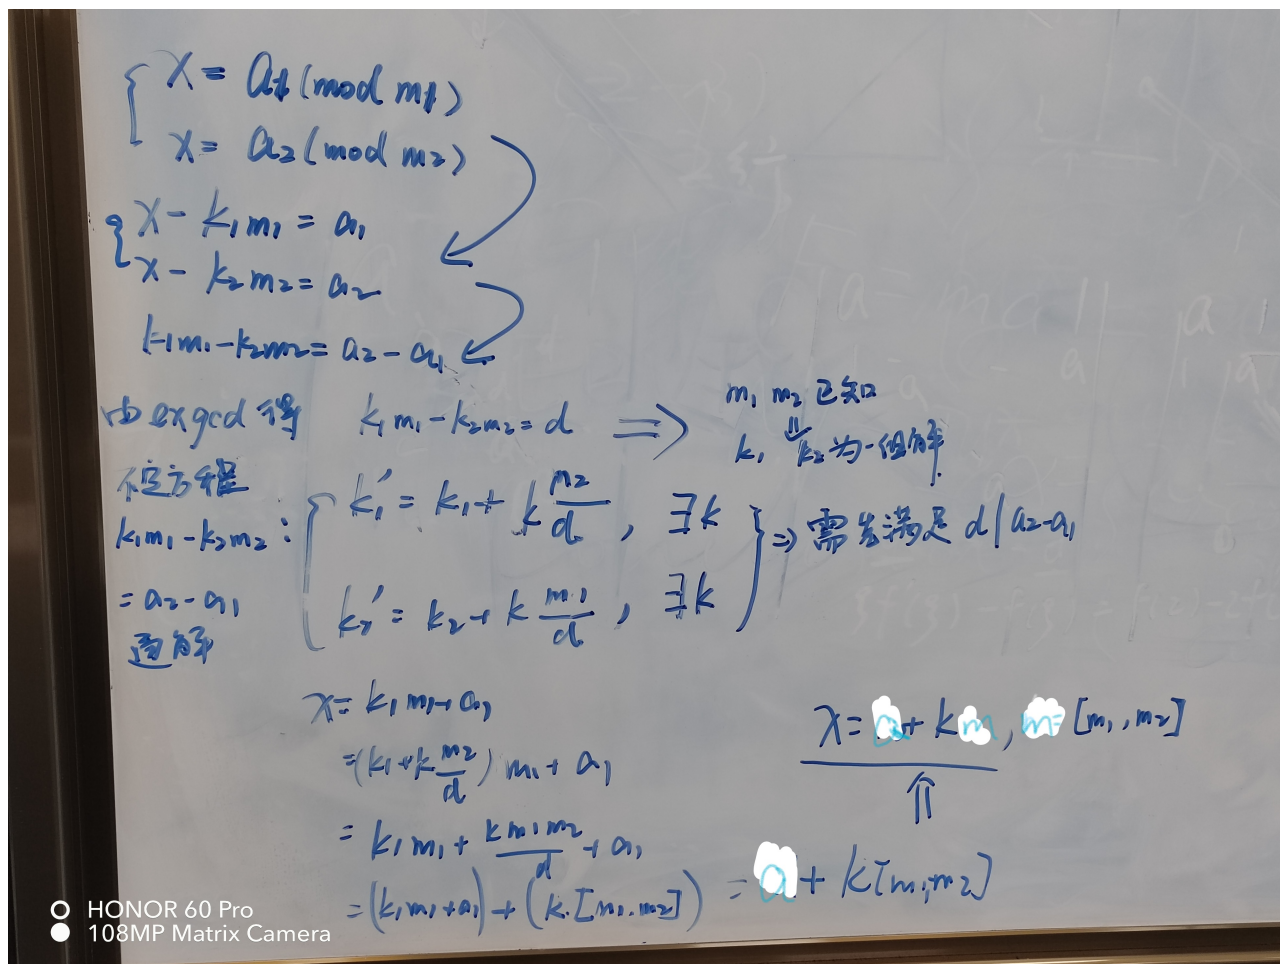 x = a1 (mod m1)
x = a2 (mod m2)
x - k1m1 = a1
x - k2m2 = a2
k1m1 - k2m2 = a2 - a1
由exgcd得 k1m1 - k2m2 = d ⇒ m1 m2 已知
⇓
k1 k2为一组解.
不定方程
k1m1 - k2m2 :
= a2 - a1
通解
k1' = k1 + k m2/d , ∃k
k2' = k2 + k m1/d , ∃k
⇒ 需先满足 d | a2-a1
x = k1m1 + a1
= (k1 + k m2/d) m1 + a1
= k1m1 + km1m2/d + a1
= (k1m1 + a1) + (k·[m1.m2]) = a + k[m1,m2]
⇑
x = a + km, m = [m1, m2]
HONOR 60 Pro
108MP Matrix Camera